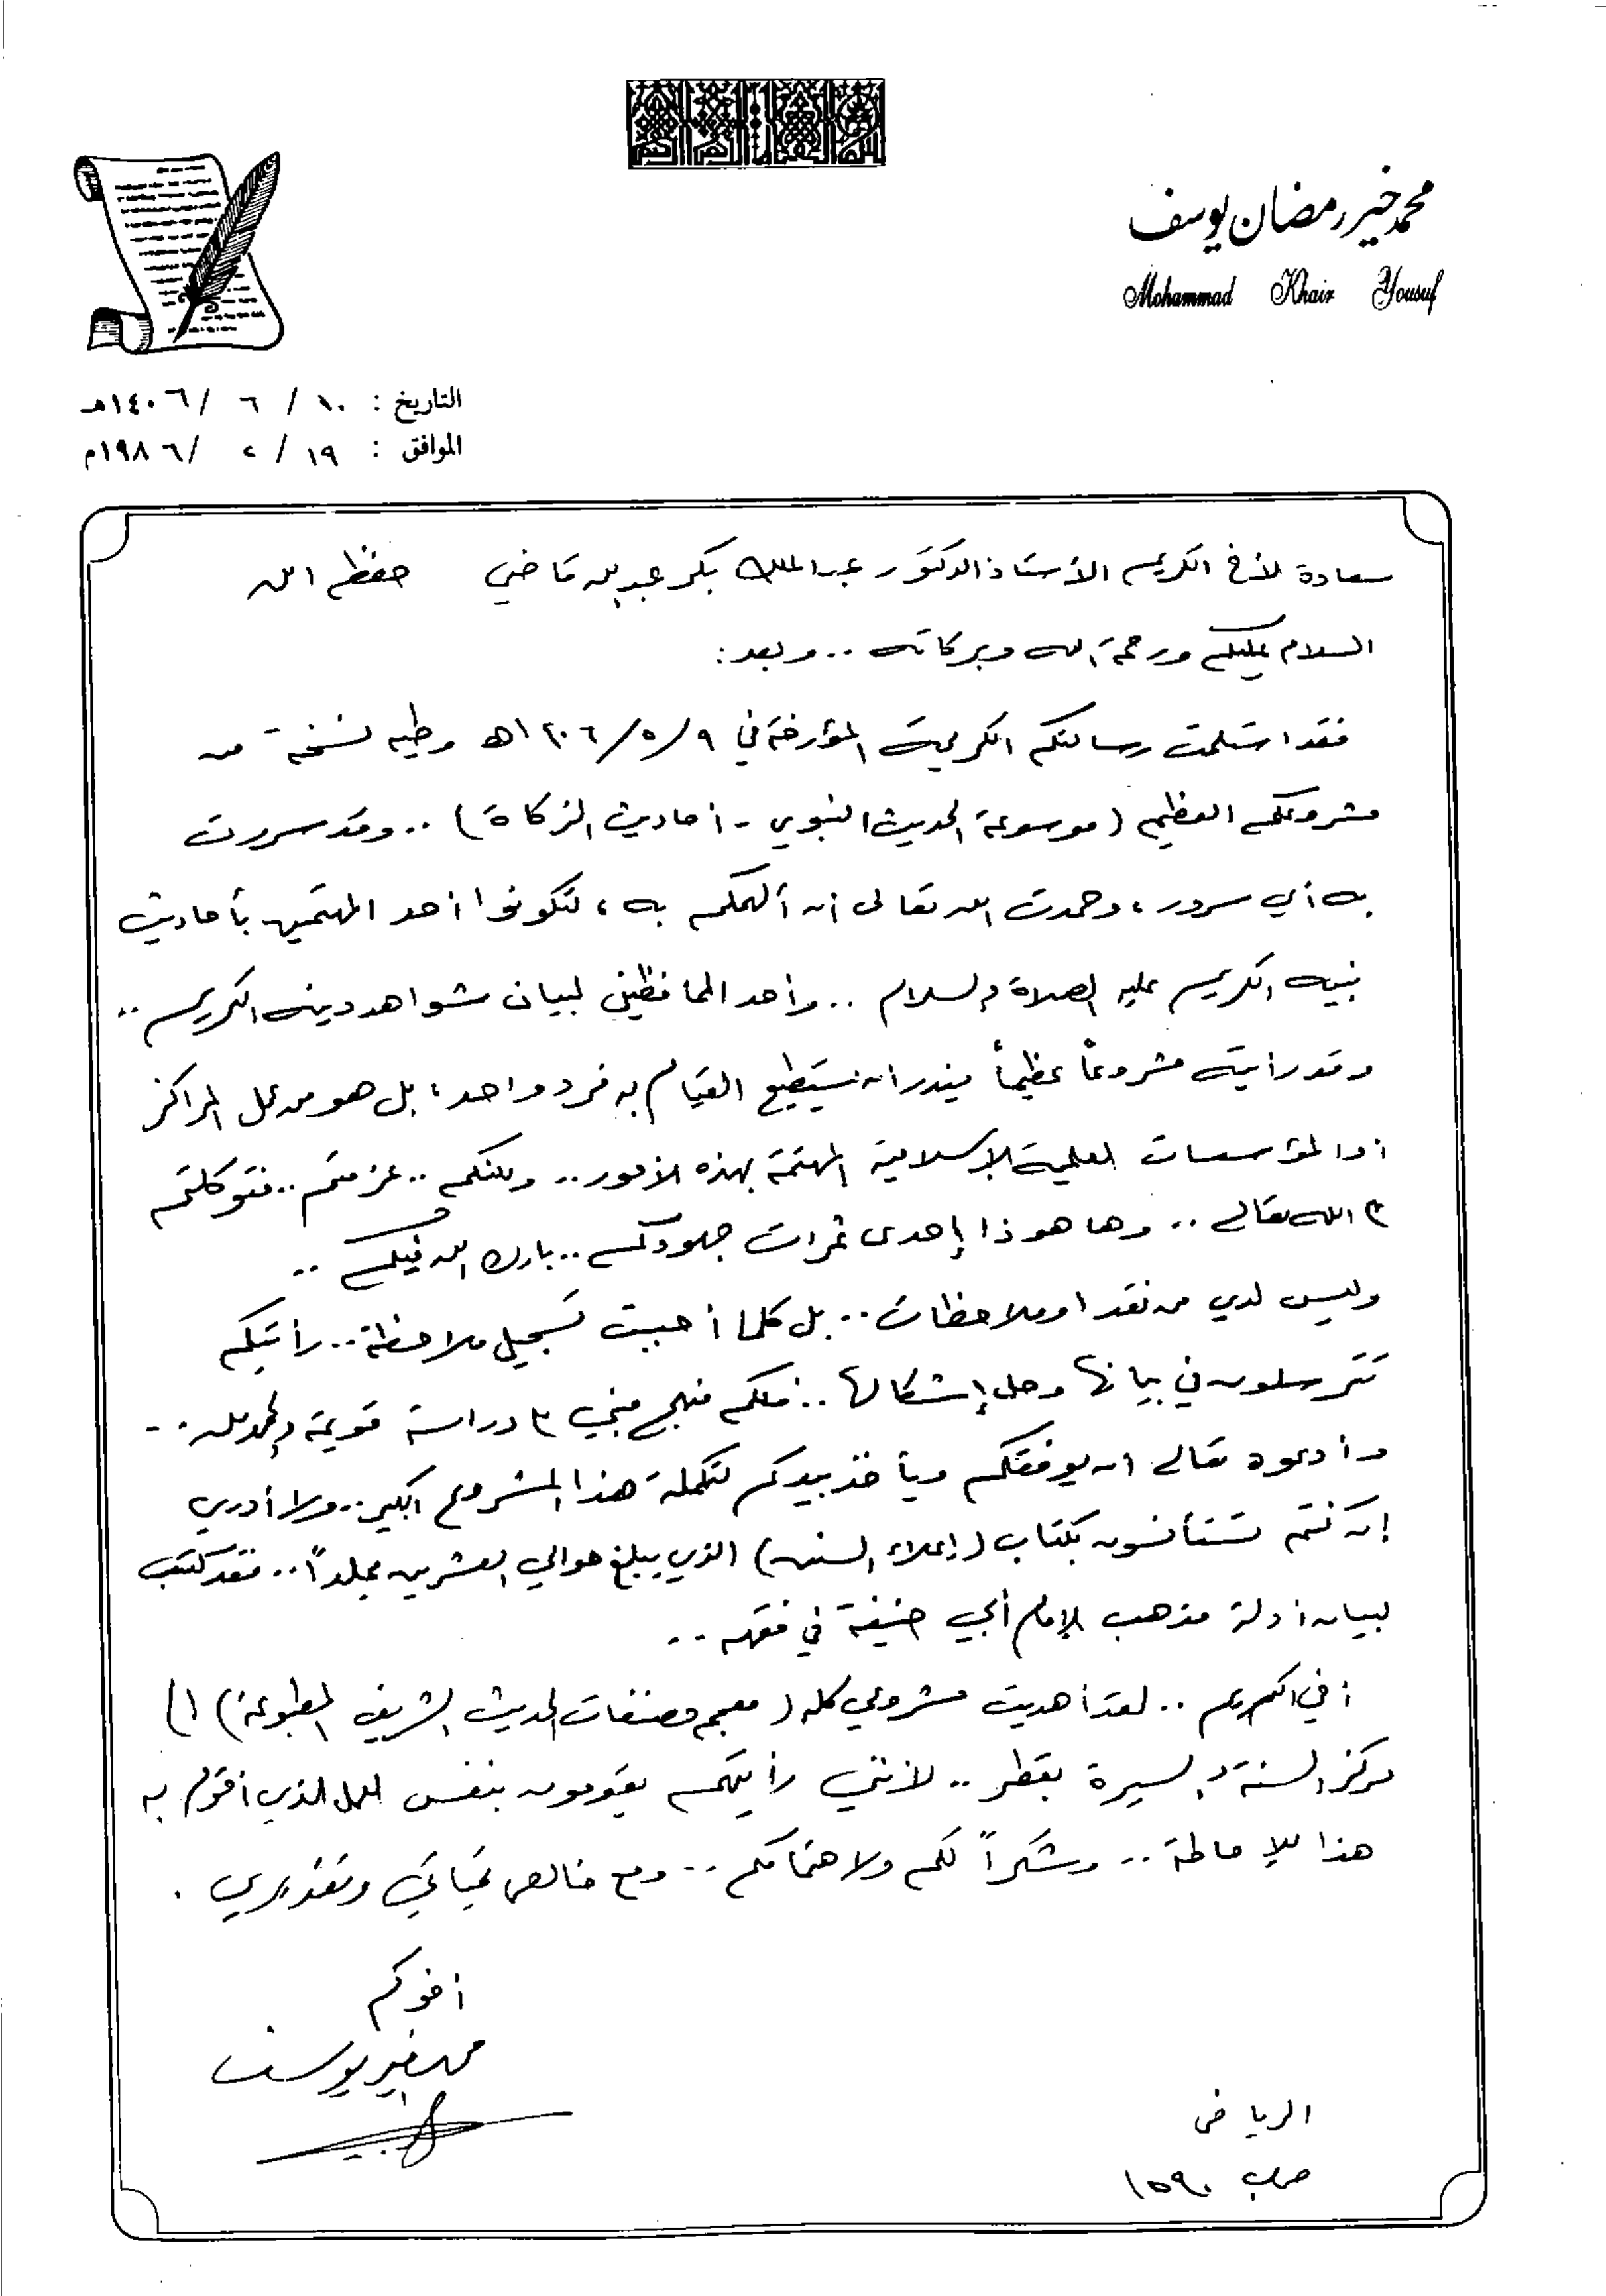 محمد خير رمضان يوسف
Mohammad Khair Yousuf
التاريخ : ١٠ / ٦ / ١٤٠٦هـ
الموافق : ١٩ / ٢ / ١٩٨٦م
سعادة الأخ الكريم الأستاذ الدكتور عبد الملك بكر عبد الله قاضي حفظه الله
السلام عليكم ورحمة الله وبركاته .. وبعد :
فقد استلمت رسالتكم الكريمة المؤرخة في ٩/٥/١٤٠٦هـ وطيه نسخة من
مشروعكم العظيم (موسوعة الحديث النبوي - أحاديث الزكاة) .. وقد سررت
به أي سرور ، وحمدت الله تعالى أن ألهمكم به ، لتكونوا أحد المهتمين بأحاديث
نبيه الكريم عليه الصلاة والسلام .. وأحد المحافظين لبيان شواهد دينه الكريم ..
وقد رأيته مشروعاً عظيماً يندر أن يستطيع القيام به فرد واحد ، بل هو من عمل المراكز
أو المؤسسات العلمية الإسلامية المهتمة بهذه الأمور .. ولكنكم .. عزمتم .. فتوكلتم
على الله تعالى .. وها هو ذا إحدى ثمرات جهودكم .. بارك الله فيكم ..
وليس لدي من نقد أو ملاحظات .. بل كلما أحببت تسجيل ملاحظة .. رأيتكم
تترسلون في بيانها وحل إشكالها .. فلكم منهج مبني على دراسة قويمة والحمد لله ..
وأدعوه تعالى أن يوفقكم ويأخذ بيدكم لتكملة هذا المشروع الكبير .. ولا أدري
إن كنتم تستأنسون بكتاب (إعلاء السنن) الذي يبلغ حوالي العشرين مجلداً .. فقد كتب
لبيان أدلة مذهب الإمام أبي حنيفة في فقهه ..
أخي الكريم .. لقد أهديت مشروعي كله (معجم مصنفات الحديث الشريف المطبوعة) إلى
مركز السنة والسيرة بقطر .. لأنني رأيتهم يقومون بنفس العمل الذي أقوم به
هذا للإحاطة .. وشكراً لكم ولاهتمامكم .. ومع خالص تحياتي وتقديري .
أخوكم
محمد خير يوسف
الرياض
ص ب ١٥٩٠